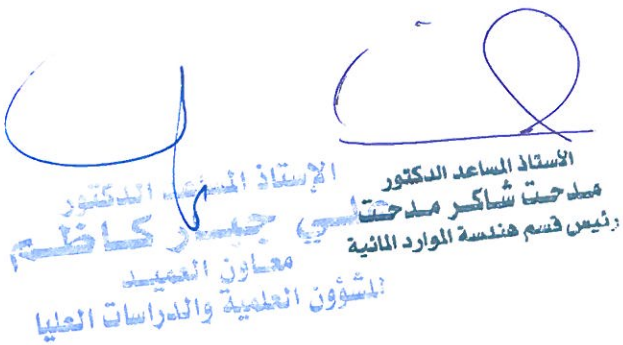 الأستاذ المساعد الدكتور
مدحت شاكر مدحت
رئيس قسم هندسة الموارد المائية
الاستاذ المساعد الدكتور
علي جبار كاظم
معاون العميد
للشؤون العلمية والدراسات العليا